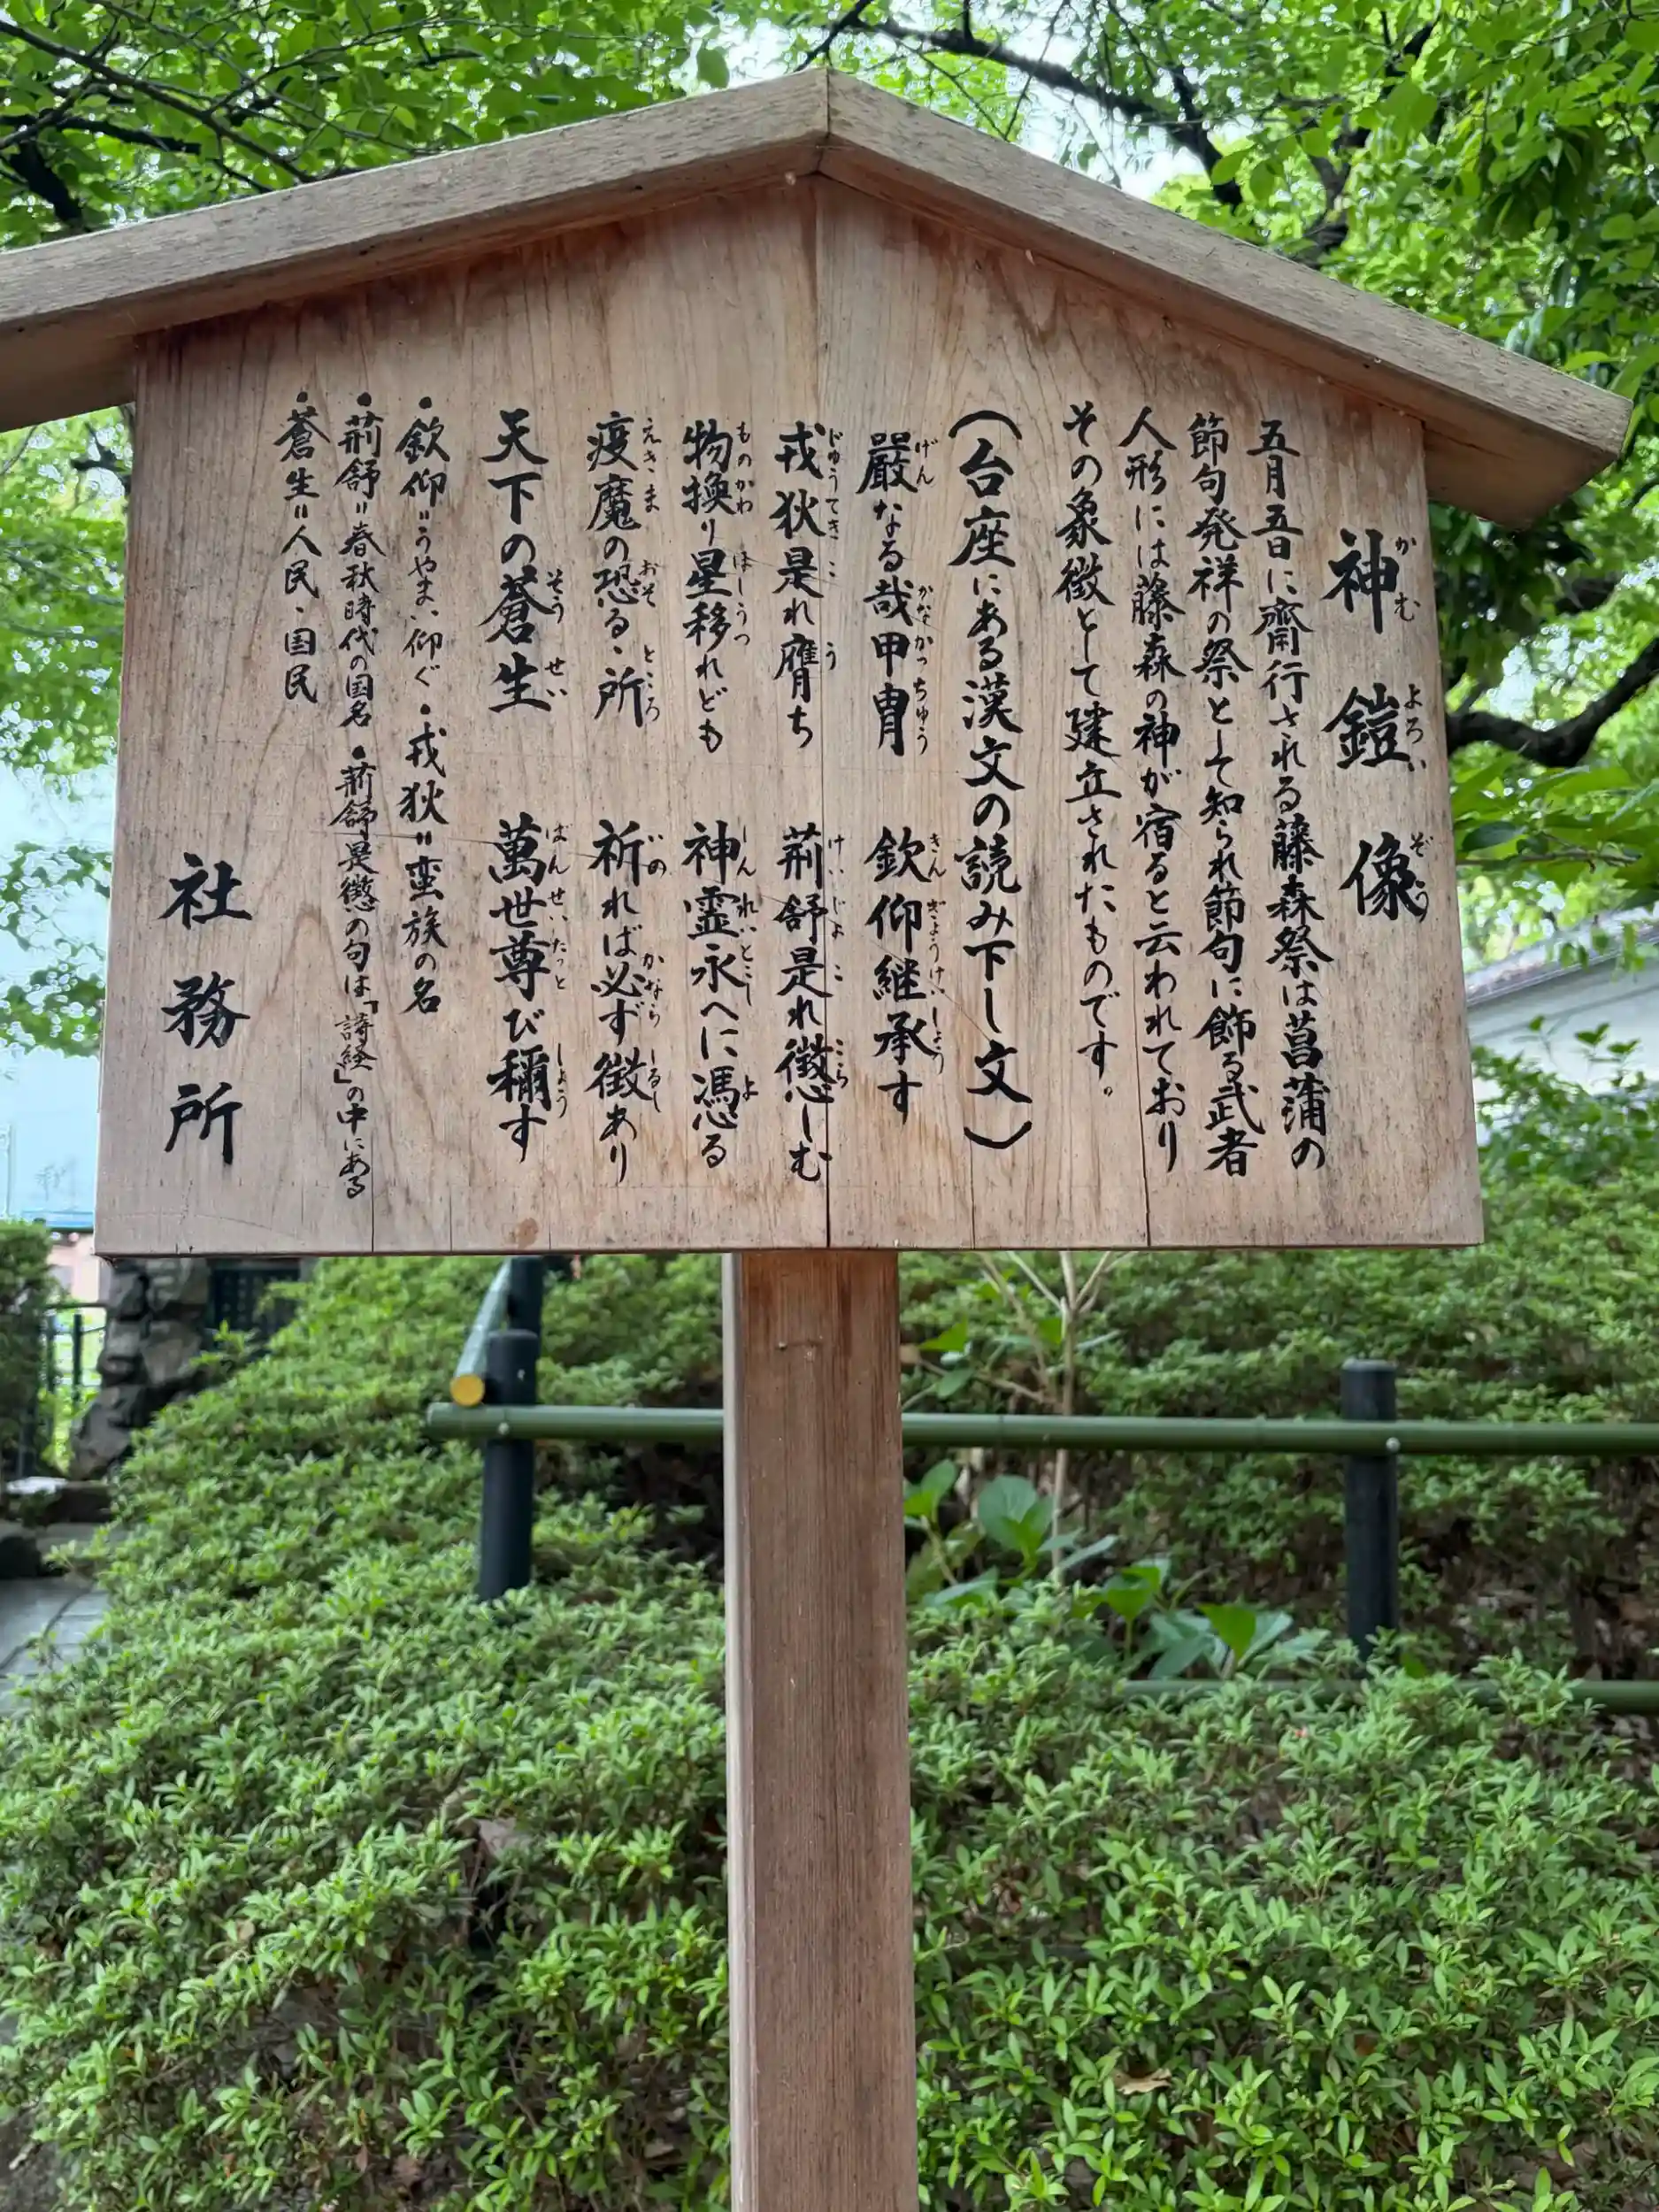 神鎧像
五月五日に齋行される藤森祭は菖蒲の
節句発祥の祭として知られ節句に飾る武者
人形には藤森の神が宿ると云われており
その象徴として建立されたものです。
(台座にある漢文の読み下し文)
嚴なる哉甲冑 欽仰継承す
戎狄是れ膺ち 荊舒是れ懲しむ
物換り星移れども 神霊永へに憑る
疫魔の恐る、所 祈れば必ず徴あり
天下の蒼生 萬世尊び稱す
・欽仰=うやまい仰ぐ ・戎狄=蛮族の名
・荊舒=春秋時代の国名 ・荊舒是懲の句は「詩経」の中にある
・蒼生=人民、国民
社務所